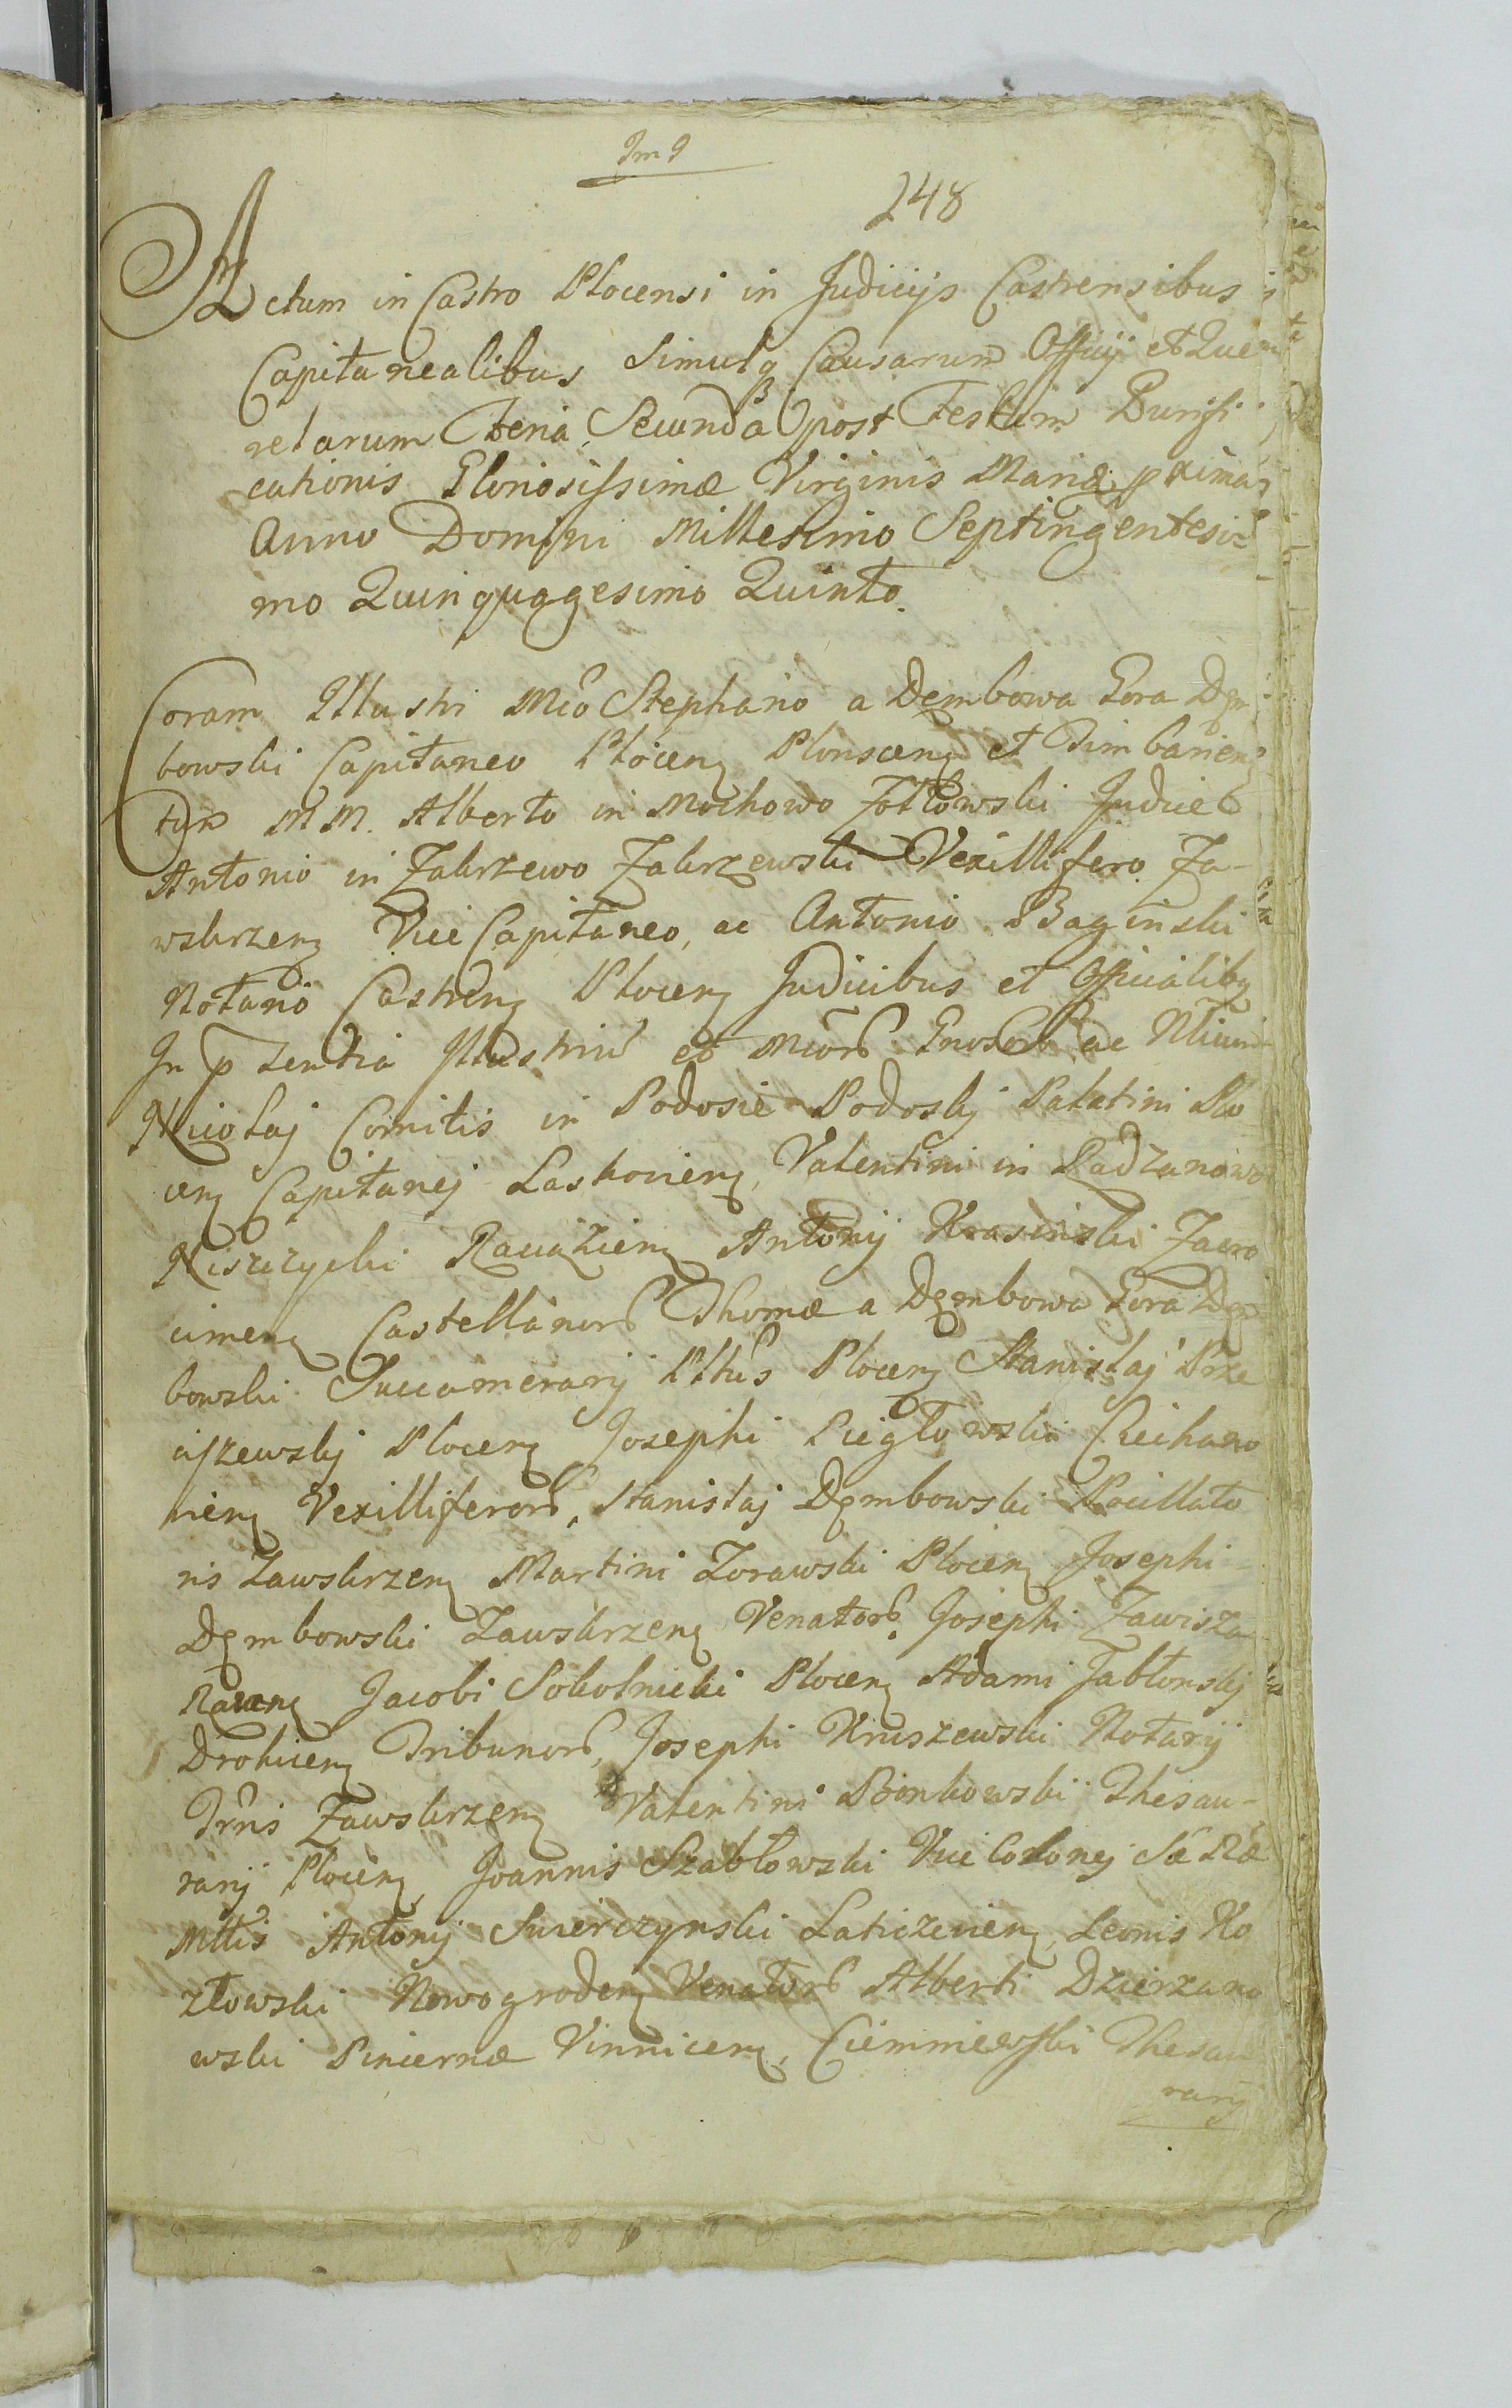 248
Actum in Castro Plocensi in Judicijs Castrensibus
Capitanealibus Simulq Causarum Officij et Que
relarum Feria Secunda post Festum Purifi
cationis Gloriosissimæ Virginis Mariæ pxima
Anno Domini Millesimo Septingentesi
mo Quinquagesimo Quinto.
Coram Illustri Mco Stephano a Dembowa Gora Dem
bowski Capitaneo Plocen Plonscen et
tqz M M. Alberto in Mochowo Zołtowski Judice
Antonio in Zakrzewo Zakrzewski Vexillifero Za-
wskrzen Vice Capitaneo, ac Antonio Baginski
Notario Castren Plocen Judicibus et Officialibq
In p sentia Illustriu et Mcor Gnosor ac
Nicolaj Comitis in Podosie Podoskj Palatini Plo
cen Capitanej Valentini in Radzanowo
Niszczycki Raciążien Antonij Krasinski Zacro
cimen Castellanor Thomæ a Dembowa Gora Dem
bowski Succamerarij Pltus Plocen Stanislaj Prze
ciszewskj Plocen Josephi Piegłowski Ciechano
vien Vexilliferor, Stanislaj Dembowski Pocillato
ris Zawskrzen Martini Zorawski Plocen Josephi
Dembowski Zawskrzen Venator, Josephi Zawisza
Raven Jacobi Sokolnicki Plocen Adami Jabłonskj
Drohicen Tribunor, Josephi Kruszewski Notarij
Trris Zawskrzen Valentini Bonkowski Thesau-
rarij Plocen, Joannis Szabłowski Vice Colonej Sæ Ræ
Mttis Antonij Swierczynski Laticzevien, Leonis Ko
złowski Nowogroden Venator Alberti Dzierzano
wski Pincernæ Vinnicen, Ciemniewski Thesau
rarij